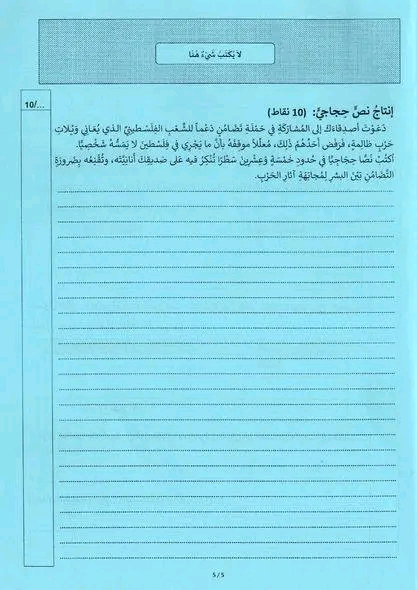 لاَ يُكْتَبُ شَيْءٌ هُنَا
10/...
إنتاجُ نصٍّ حِجاجيٍّ: (10 نقاط)
دَعَوْتَ أصدِقاءَكَ إلى المُشارَكَةِ في حَمْلَةِ تَضَامُنٍ دَعْماً للشَّعْبِ الفِلَسْطينيِّ الذي يُعَانِي وَيْلَاتِ
حَرْبٍ ظالِمةٍ، فرَفَضَ أحَدُهُمْ ذلكَ، مُعَلِّلاً موقفَهُ بأنَّ ما يَجْرِي في فِلَسْطينَ لا يَمَسُّهُ شَخْصِيًّا.
اُكتُبْ نَصًّا حِجاجِيًّا في حُدودِ خَمْسَةٍ وَعِشْرينَ سَطْرًا تُنْكِرُ فيه عَلى صَديقِكَ أنانيَّتَه، وتُقْنِعُه بِضَرورَةِ
التَّضَامُنِ بَيْنَ البشرِ لِمُجابَهَةِ آثارِ الحَرْبِ.
5 / 5